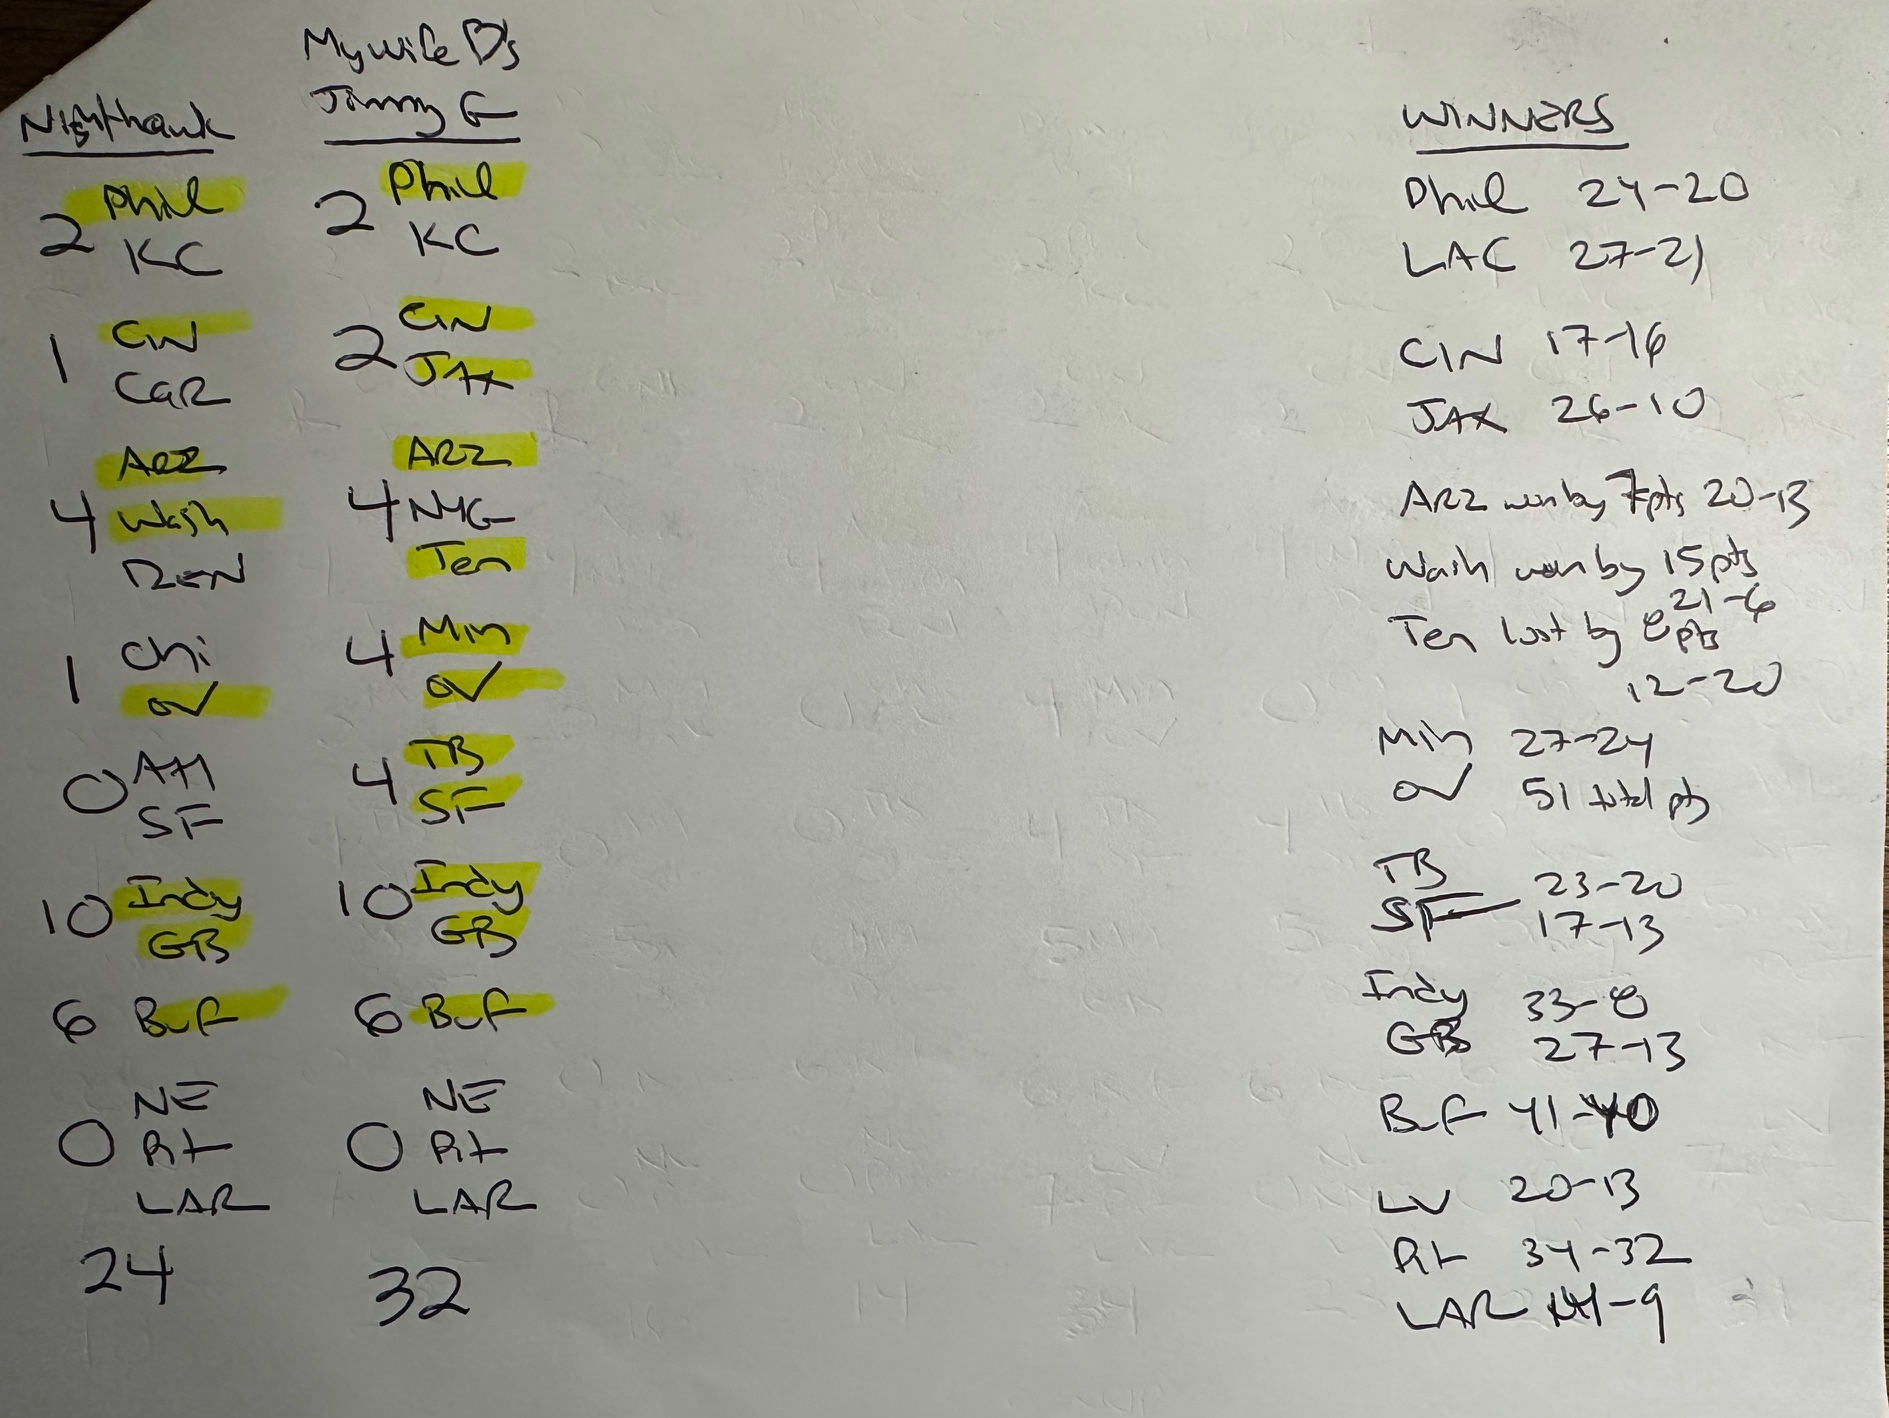 My wife B's
Nighthawk
Jimmy G
WINNERS
2 Phil
KC
2 Phil
KC
Phil 24-20
LAC 27-21
1 CIN
CAR
2 CIN
JAX
CIN 17-16
JAX 26-10
ARZ
4 Wash
DEN
ARZ
4 NYG
Ten
ARZ won by 7pts 20-13
Wash won by 15pts
21-6
Ten lost by 8pts
12-20
1 Chi
OV
4 Min
OV
Min 27-24
OV 51 total pts
0 Atl
SF
4 TB
SF
TB 23-20
SF 17-13
10 Indy
GB
10 Indy
GB
Indy 33-8
GB 27-13
6 Buf
6 Buf
Buf 41-40
NE
0 Pit
LAR
NE
0 Pit
LAR
LV 20-13
Pit 34-32
LAR 14-9
24
32